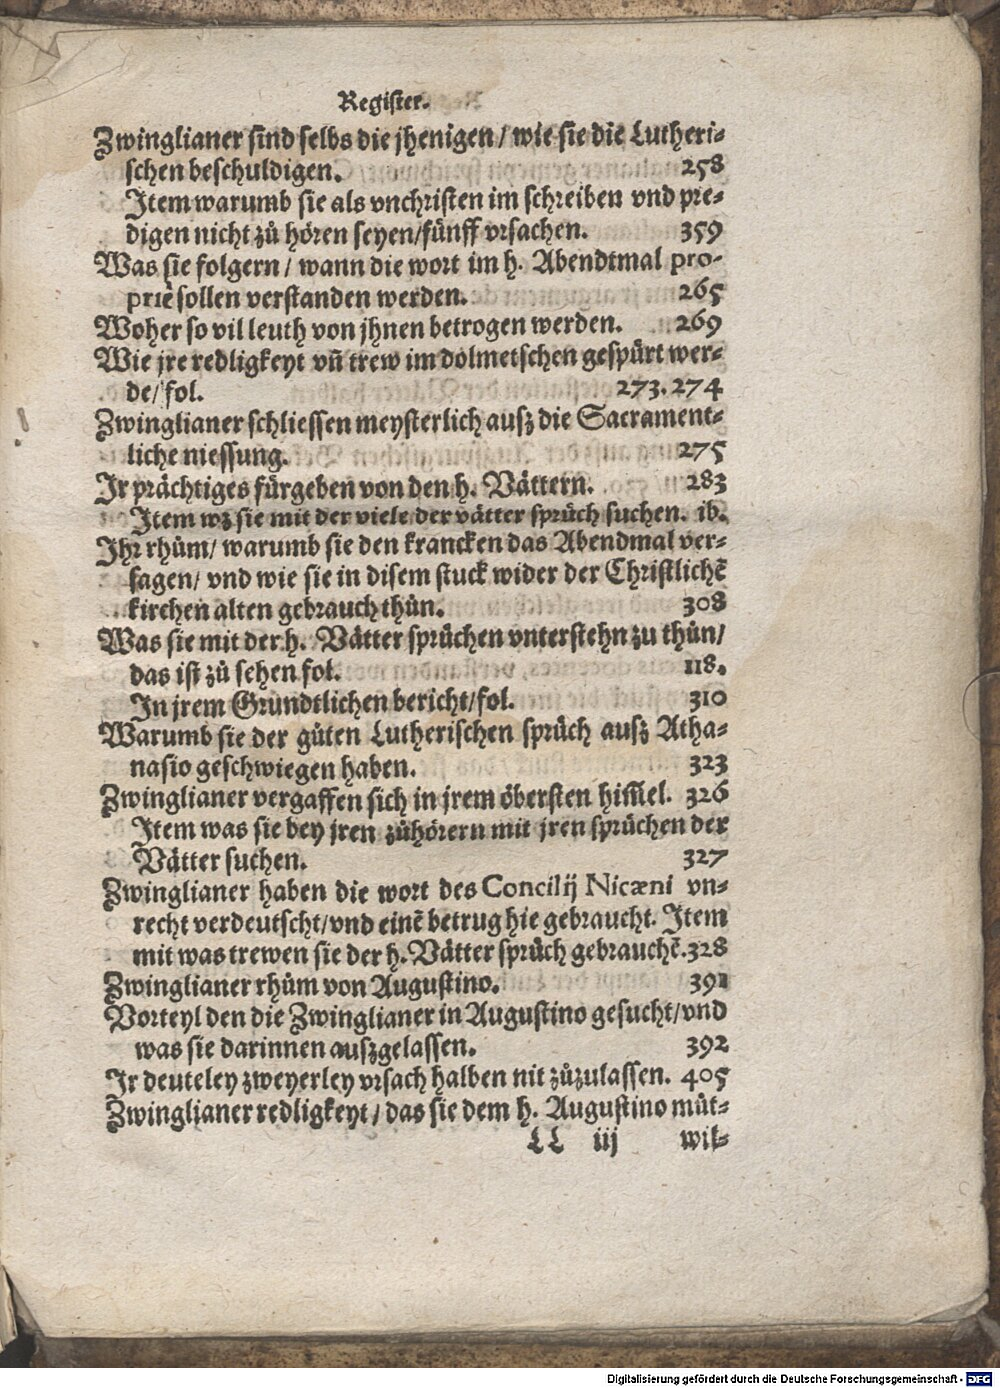 Register.
Zwinglianer sind selbs die jhenigen / wie sie die Lutheri-
schen beschuldigen. 258
Item warumb sie als vnchristen im schreiben vnd pre-
digen nicht zů hören seyen/fünff vrsachen. 359
Was sie folgern / wann die wort im h. Abendtmal pro-
priè sollen verstanden werden. 265
Woher so vil leuth von jhnen betrogen werden. 269
Wie jre redligkeyt vñ trew im dolmetschen gespürt wer-
de/ fol. 273. 274
Zwinglianer schliessen meysterlich ausz die Sacrament-
liche niessung. 275
Ir prächtiges fürgeben von den h. Vättern. 283
Item wz sie mit der viele der vätter sprüch suchen. ib.
Ihr rhům/ warumb sie den krancken das Abendmal ver-
sagen/ vnd wie sie in disem stuck wider der Christlichē
kirchen alten gebrauch thůn. 308
Was sie mit der h. Vätter sprüchen vnterstehn zu thůn/
das ist zů sehen fol. 118.
In jrem Gründtlichen bericht/fol. 310
Warumb sie der gůten Lutherischen sprüch ausz Atha-
nasio geschwiegen haben. 323
Zwinglianer vergaffen sich in jrem öbersten him̃el. 326
Item was sie bey jren zůhörern mit jren sprüchen der
Vätter suchen. 327
Zwinglianer haben die wort des Concilij Nicæni vn-
recht verdeutscht/vnd einē betrug hie gebraucht. Item
mit was trewen sie der h. Vätter sprüch gebrauchē. 328
Zwinglianer rhům von Augustino. 391
Vorteyl den die Zwinglianer in Augustino gesucht/vnd
was sie darinnen auszgelassen. 392
Ir deuteley zweyerley vrsach halben nit zůzulassen. 405
Zwinglianer redligkeyt / das sie dem h. Augustino můt-
LL iij wil-
Digitalisierung gefördert durch die Deutsche Forschungsgemeinschaft - DFG